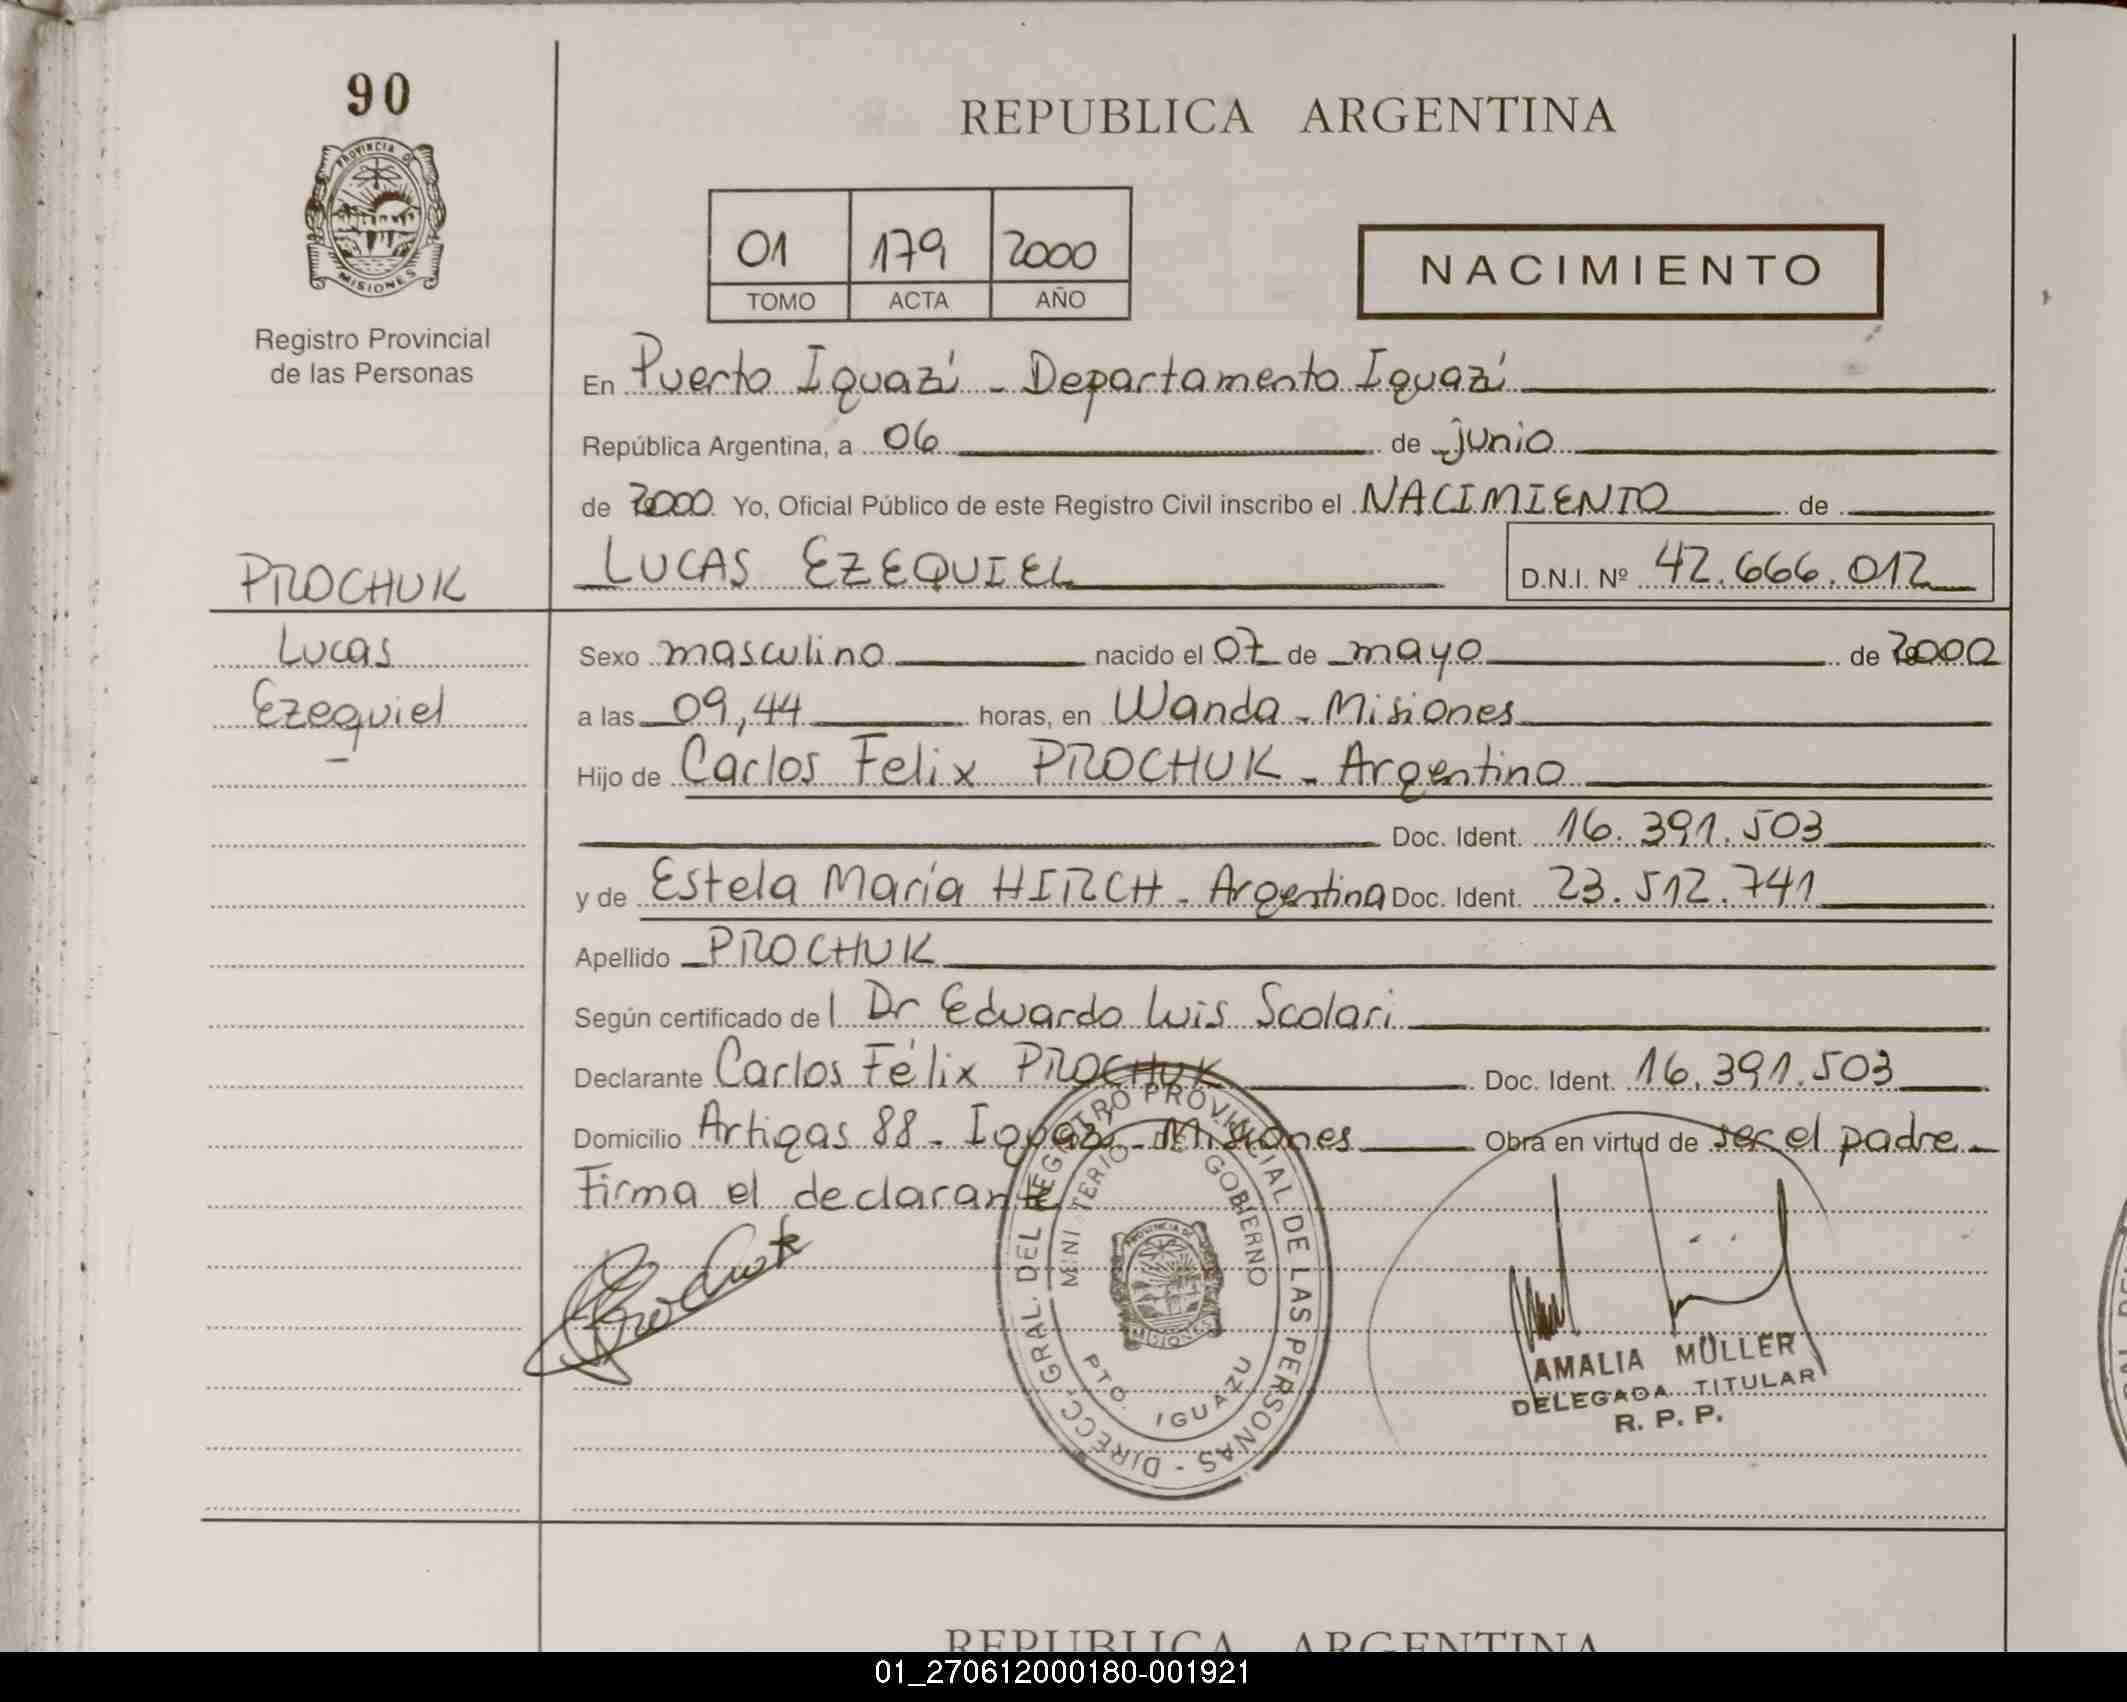 90
PROVINCIA DE
MISIONES
Registro Provincial
de las Personas
REPUBLICA ARGENTINA
01 179 2000
TOMO ACTA AÑO
NACIMIENTO
En Puerto Iguazú - Departamento Iguazú
República Argentina, a 06 de junio
de 2000 Yo, Oficial Público de este Registro Civil inscribo el NACIMIENTO de
PROCHUK
LUCAS EZEQUIEL D.N.I. Nº 42.666.012
Lucas
Ezequiel
Sexo masculino nacido el 07 de mayo de 2000
a las 09,44 horas, en Wanda - Misiones
Hijo de Carlos Felix PROCHUK - Argentino
Doc. Ident. 16.391.503
y de Estela María HIRCH - Argentina Doc. Ident. 23.512.741
Apellido PROCHUK
Según certificado del Dr Eduardo Luis Scolari
Declarante Carlos Félix PROCHUK Doc. Ident. 16.391.503
Domicilio Artigas 88 - Iguazú - Misiones Obra en virtud de ser el padre
Firma el declarante
DIRECC. GRAL. DEL REGISTRO PROVINCIAL DE LAS PERSONAS -
MINISTERIO DE GOBIERNO
PTO. IGUAZU
AMALIA MÜLLER
DELEGADA TITULAR
R. P. P.
REPUBLICA ARGENTINA
01_270612000180-001921